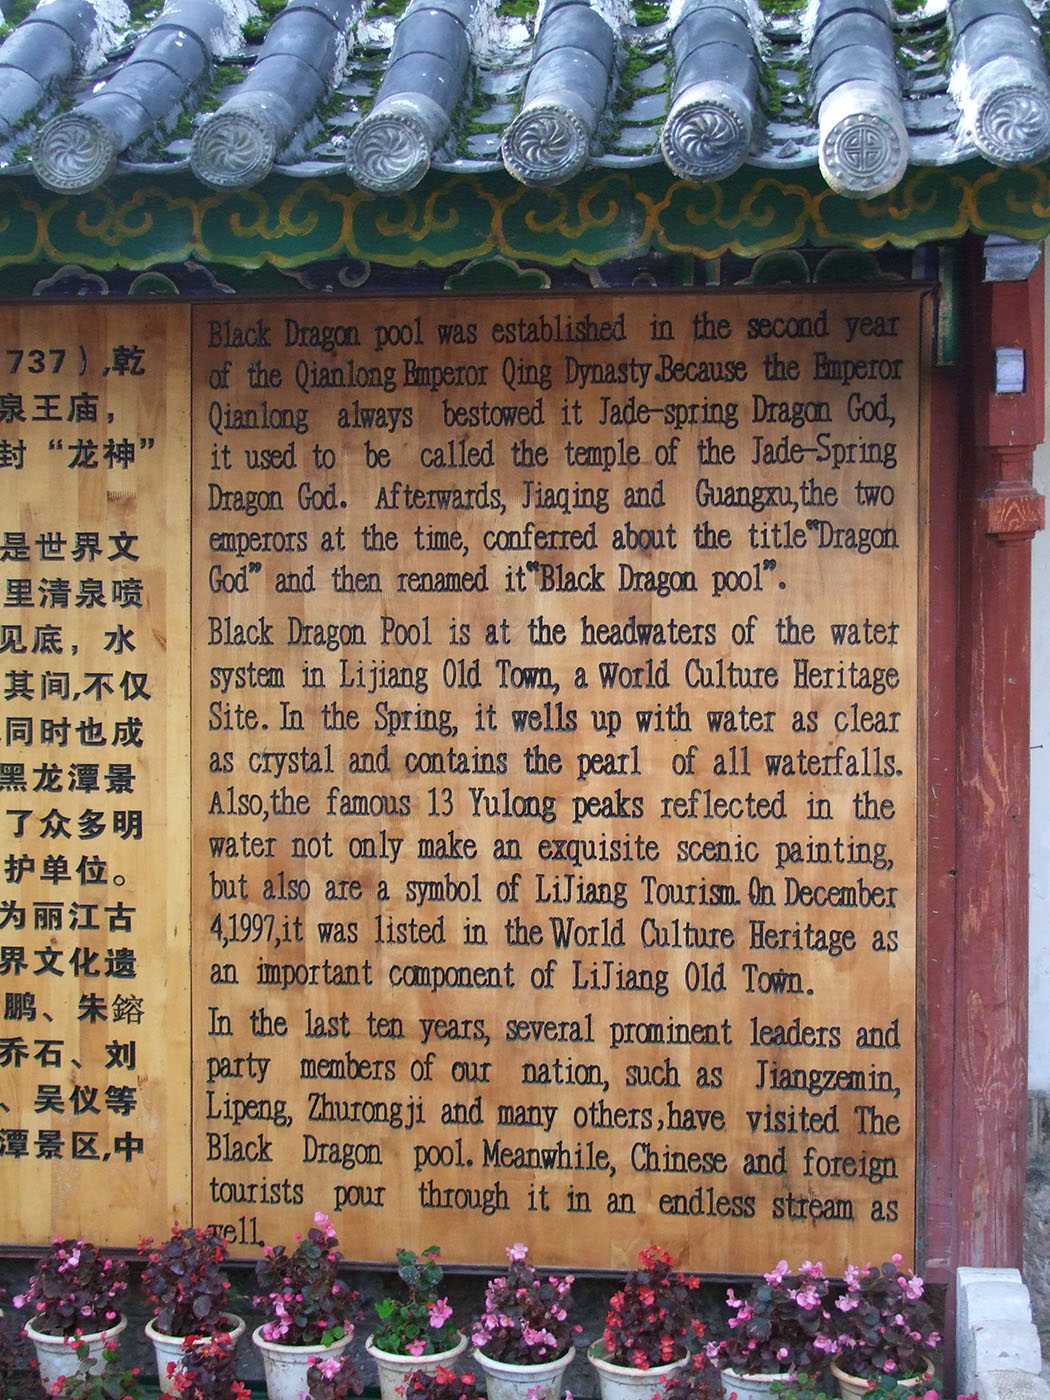 737）,乾
泉王庙，
封“龙神”
是世界文
里清泉喷
见底，水
其间,不仅
同时也成
黑龙潭景
了众多明
护单位。
为丽江古
界文化遗
鹏、朱鎔
乔石、刘
、吴仪等
潭景区,中
Black Dragon pool was established in the second year
of the Qianlong Emperor Qing Dynasty.Because the Emperor
Qianlong always bestowed it Jade-spring Dragon God,
it used to be called the temple of the Jade-Spring
Dragon God. Afterwards, Jiaqing and Guangxu,the two
emperors at the time, conferred about the title“Dragon
God” and then renamed it“Black Dragon pool”.
Black Dragon Pool is at the headwaters of the water
system in Lijiang Old Town, a World Culture Heritage
Site. In the Spring, it wells up with water as clear
as crystal and contains the pearl of all waterfalls.
Also,the famous 13 Yulong peaks reflected in the
water not only make an exquisite scenic painting,
but also are a symbol of LiJiang Tourism. On December
4,1997,it was listed in the World Culture Heritage as
an important component of LiJiang Old Town.
In the last ten years, several prominent leaders and
party members of our nation, such as Jiangzemin,
Lipeng, Zhurongji and many others,have visited The
Black Dragon pool. Meanwhile, Chinese and foreign
tourists pour through it in an endless stream as
well.